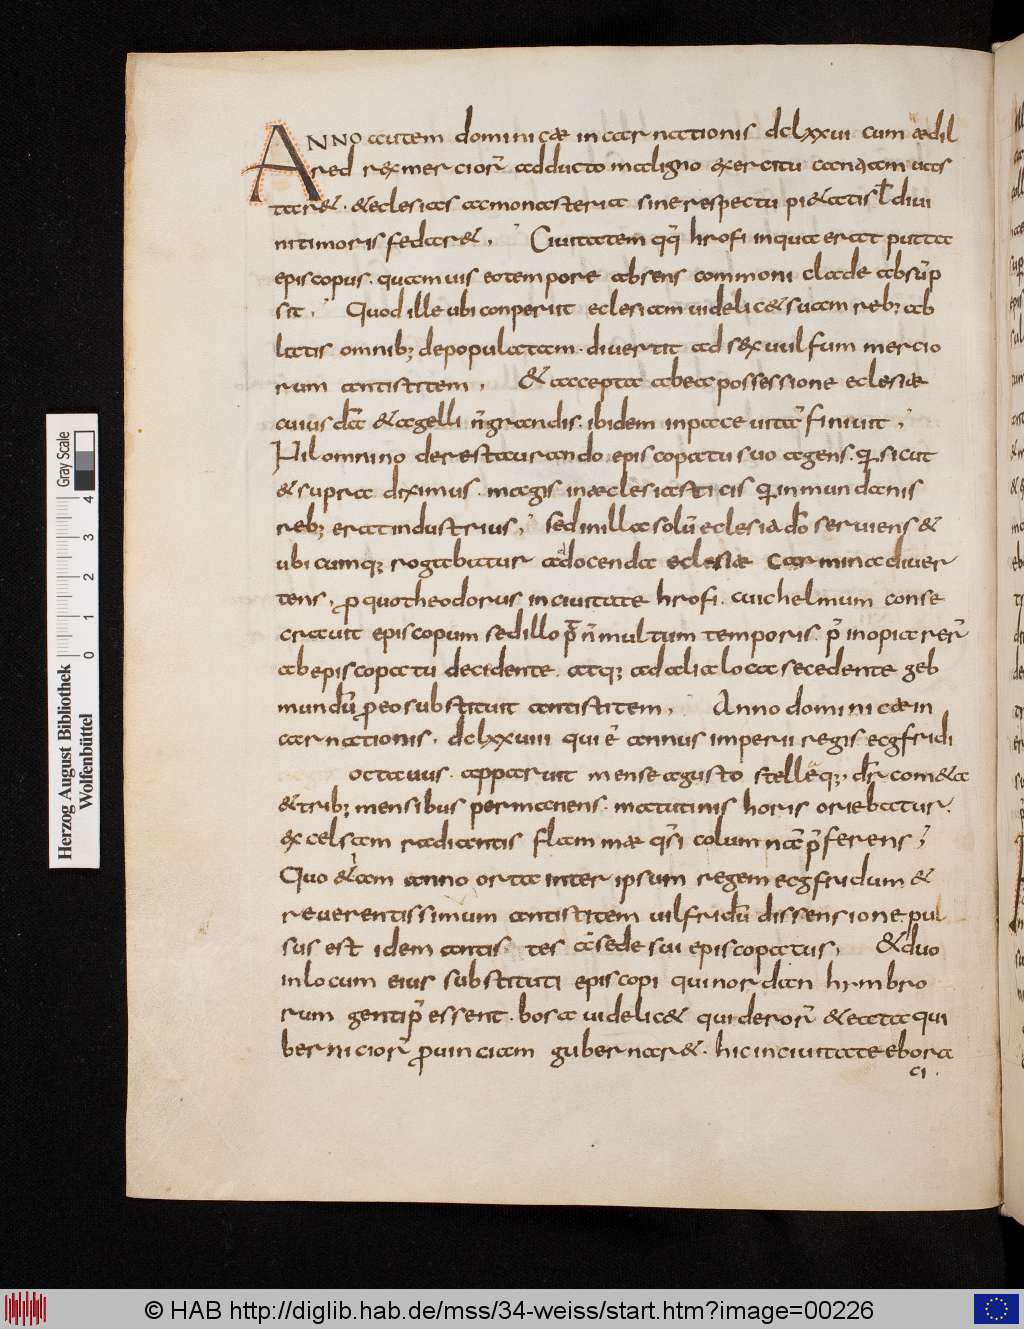 ANNO autem dominicae incarnationis dclxxvi cum ædil
red rex mercioR̄ adducto maligno exercitu cantiam uas
tar&. &eclesias acmonasteria sinerespectu pi&atis ł diui
nitimoris fedar&, Ciuitatem qq̄ hrofi inqua erat putta
episcopus. quamuis eotempore absens commoni clade absūp
sit, Quod ille ubi conperiit eclesiam uidelic& suam reb; ab
latis omnib; depopulatam. diuertit ad sexuulfum mercio
rum antistitem, & accepta abea possessione eclesiæ
cuius dā & agelli n̄ grandis. ibidem inpace uitā finiuit,
Nil omnino derestaurando episcopatu suo agens. q sicut
& supra diximus. magis inæclesiasticis q in mundanis
reb; erat industrius, sed inilla solū eclesia dō seruiens &
ubicumq; rogabatur addocenda eclesiæ carmina diuer
tens, p quotheodorus inciuitate hrofi. cuichelmum conse
crauit episcopum sed illo p n̄ multum temporis. p̄ inopia reR̄
abepiscopatu decidente. atq; ad alia loca secedente geb
mundū p eo substituit antistitem, Anno dominicæ in
carnationis. dclxxviii qui ē annus imperii regis ecgfridi
octauus. apparuit mense agusto stelle q;. dr̄ com&a
& trib; mensibus permanens. matutinis horis oriebatur.
excelsam radiantis flammæ qsi columnā p̄ferens,
Quo &iam anno orta inter ipsum regem ecgfridum. &
reuerentissimum antistitem uilfridū dissensione. pul
sus est idem antis tes a sede sui episcopatus, & duo
inlocum eius substituti episcopi qui nordan hymbro
rum genti p̄essent. bosa uidelic& qui deroR̄ & eata qui
bernicioR̄ puinciam gubernar&. hic inciuitate ebora
ci.
Herzog August Bibliothek
Wolfenbüttel
0 1 2 3 4
Gray Scale
© HAB http://diglib.hab.de/mss/34-weiss/start.htm?image=00226